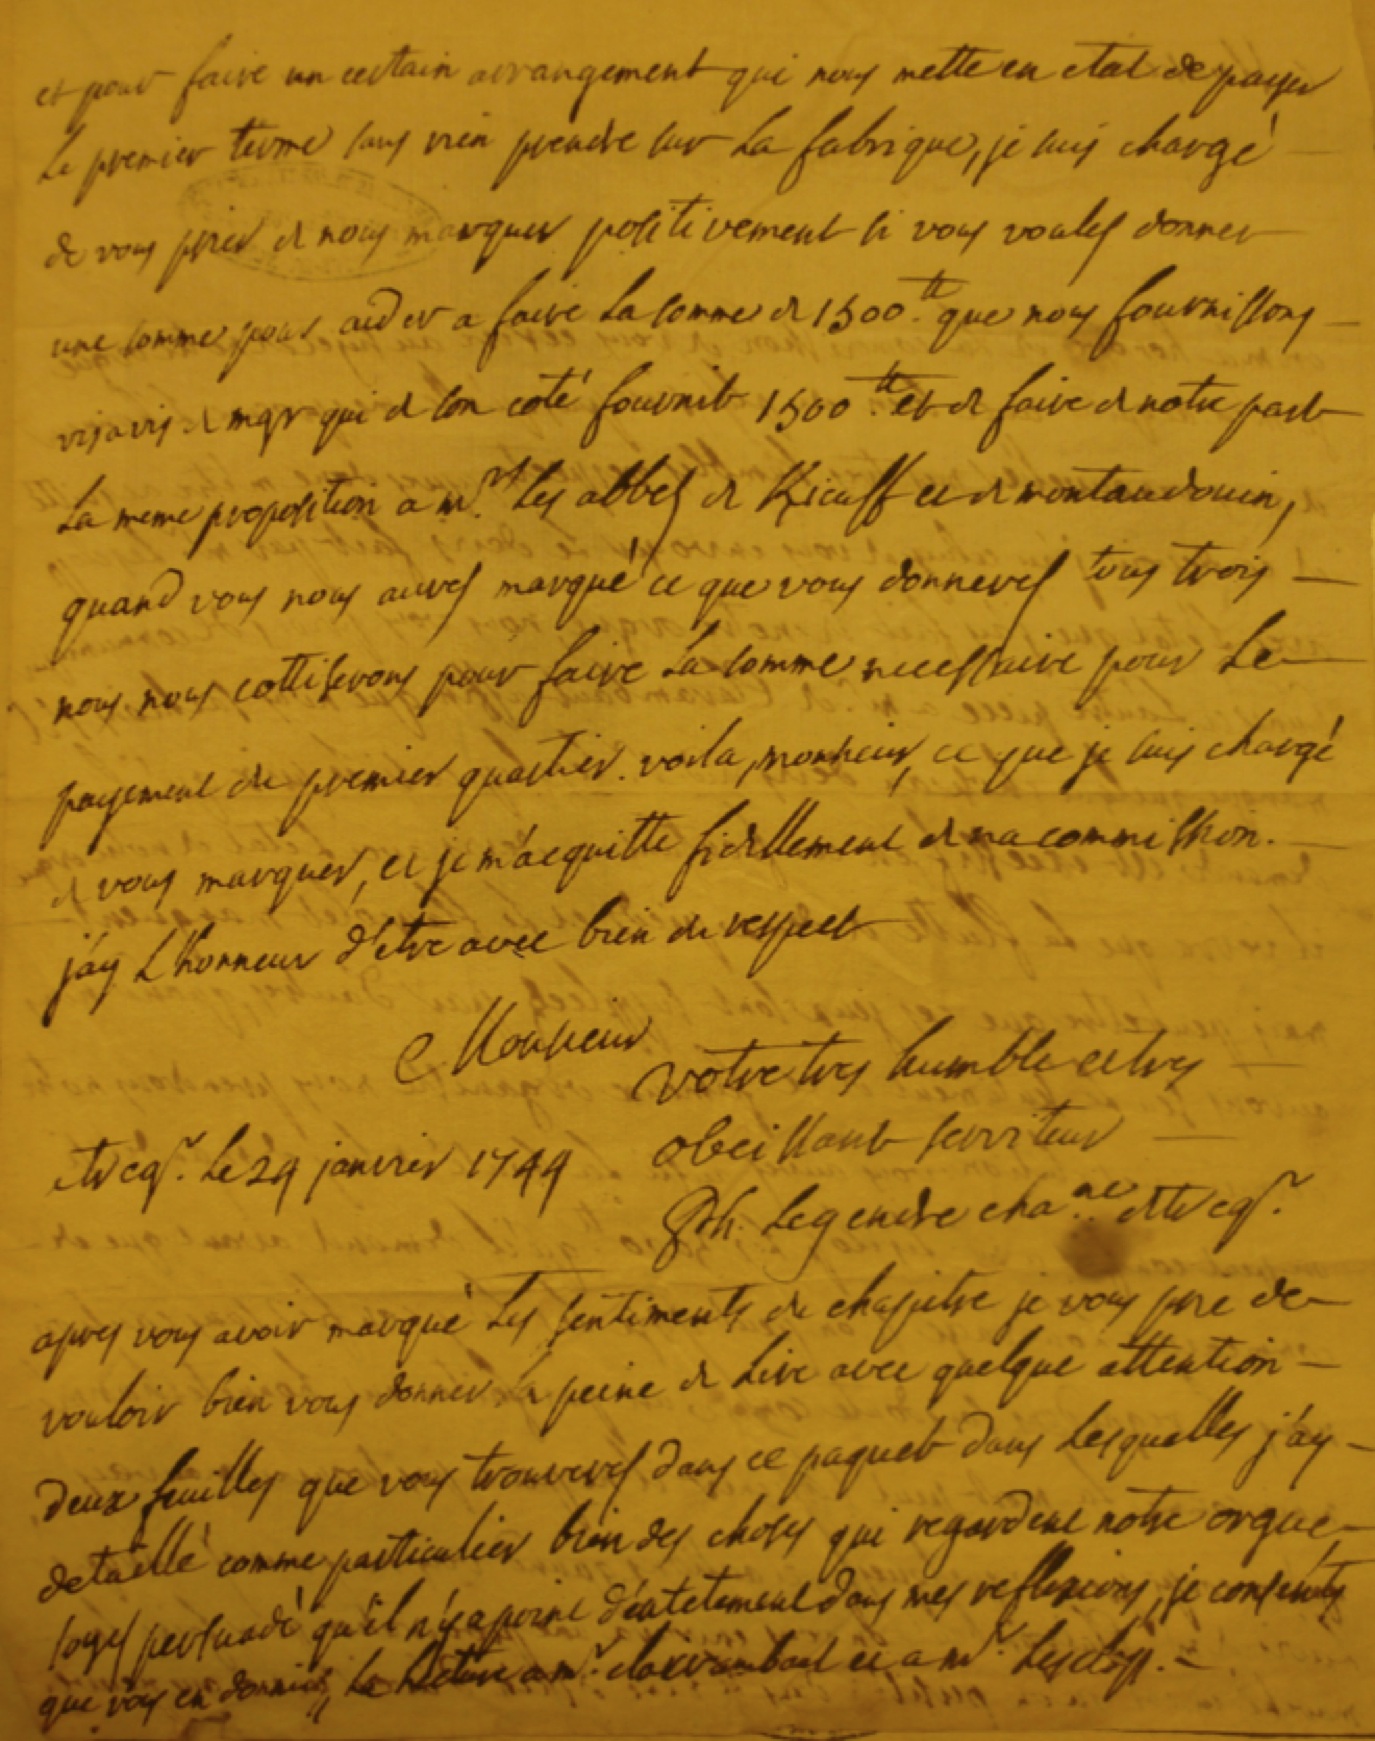 et pour faire un certain arrangement qui nous mette en etat de payer
le premier terme sans rien prendre sur la fabrique, je suis chargé
de vous prier de nous marquer positivement si vous voulés donner
une somme pour aider a faire la somme de 1500.tt que nous fournissons
visavis de mgr qui de son coté fournit 1500.tt et de faire de notre part
la meme proposition a mrs. les abbés de et de montaudouin,
quand vous nous aurés marqué ce que vous donnerés tous trois
nous nous cottiserons pour faire la somme necessaire pour le
payement du premier quartier. voila, monsieur, ce que je suis chargé
de vous marquer, et je m'acquitte fidellement de ma commission.
j'ay l'honneur d'etre avec bien du respect
Monsieur
votre tres humble et tres
obeissant serviteur
le 29 janvier 1744
legendre cha.ne de
apres vous avoir marqué les sentiments du chapitre je vous prie de
vouloir bien vous donner la peine de lire avec quelque attention
deux feuilles que vous trouverés dans ce paquet dans lesquelles j'ay
detaillé comme particulier bien des choses qui regardent notre orgue
soyés persuadé qu'il n'y a point d'entetement dans mes reflexions, je consents
que vous en donniés la lecture a mr. et a mr.